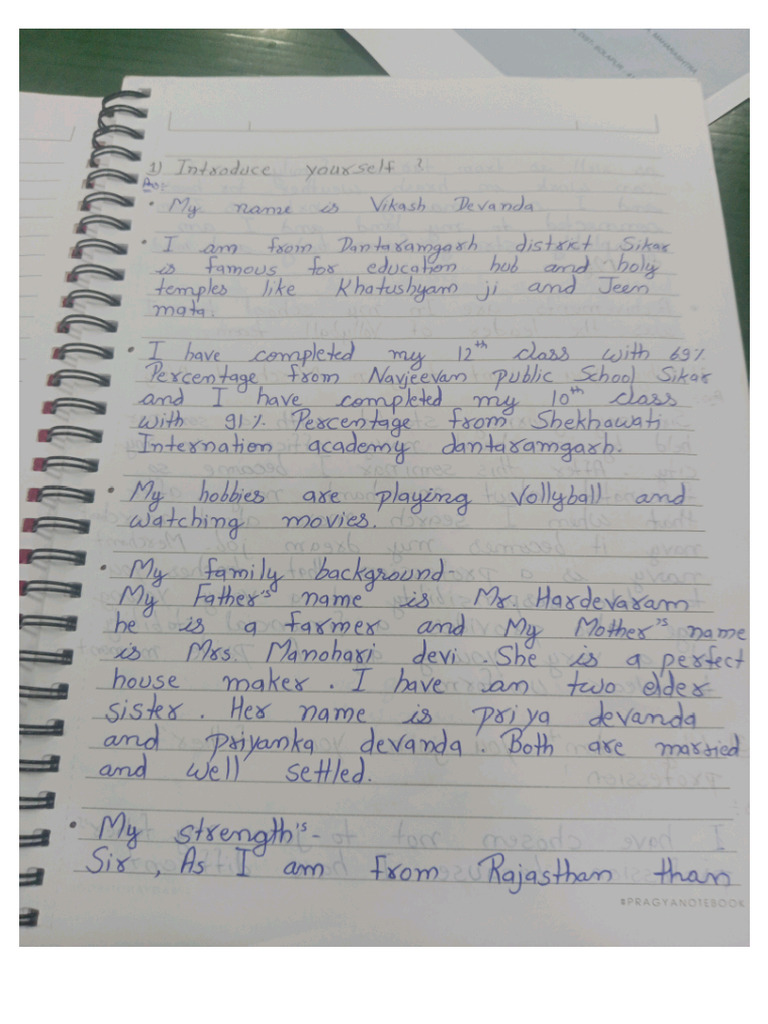 1) Introduce yourself ?
Ans:
• My name is Vikash Devanda
• I am from Dantaramgarh district Sikar
is famous for education hub and holy
temples like Khatushyam ji and Jeen
mata.
• I have completed my 12th class with 69%
Percentage from Navjeevan public School Sikar
and I have completed my 10th class
with 91% Percentage from Shekhawati
Internation academy dantaramgarh.
• My hobbies are playing Vollyball and
watching movies.
• My family background-
My Father's name is Mr. Hardevaram
he is a farmer and My Mother's name
is Mrs. Manohari devi. She is a perfect
house maker. I have an two elder
sister. Her name is priya devanda
and priyanka devanda. Both are married
and well settled.
• My strength's-
Sir, As I am from Rajasthan than
#PRAGYANOTEBOOK